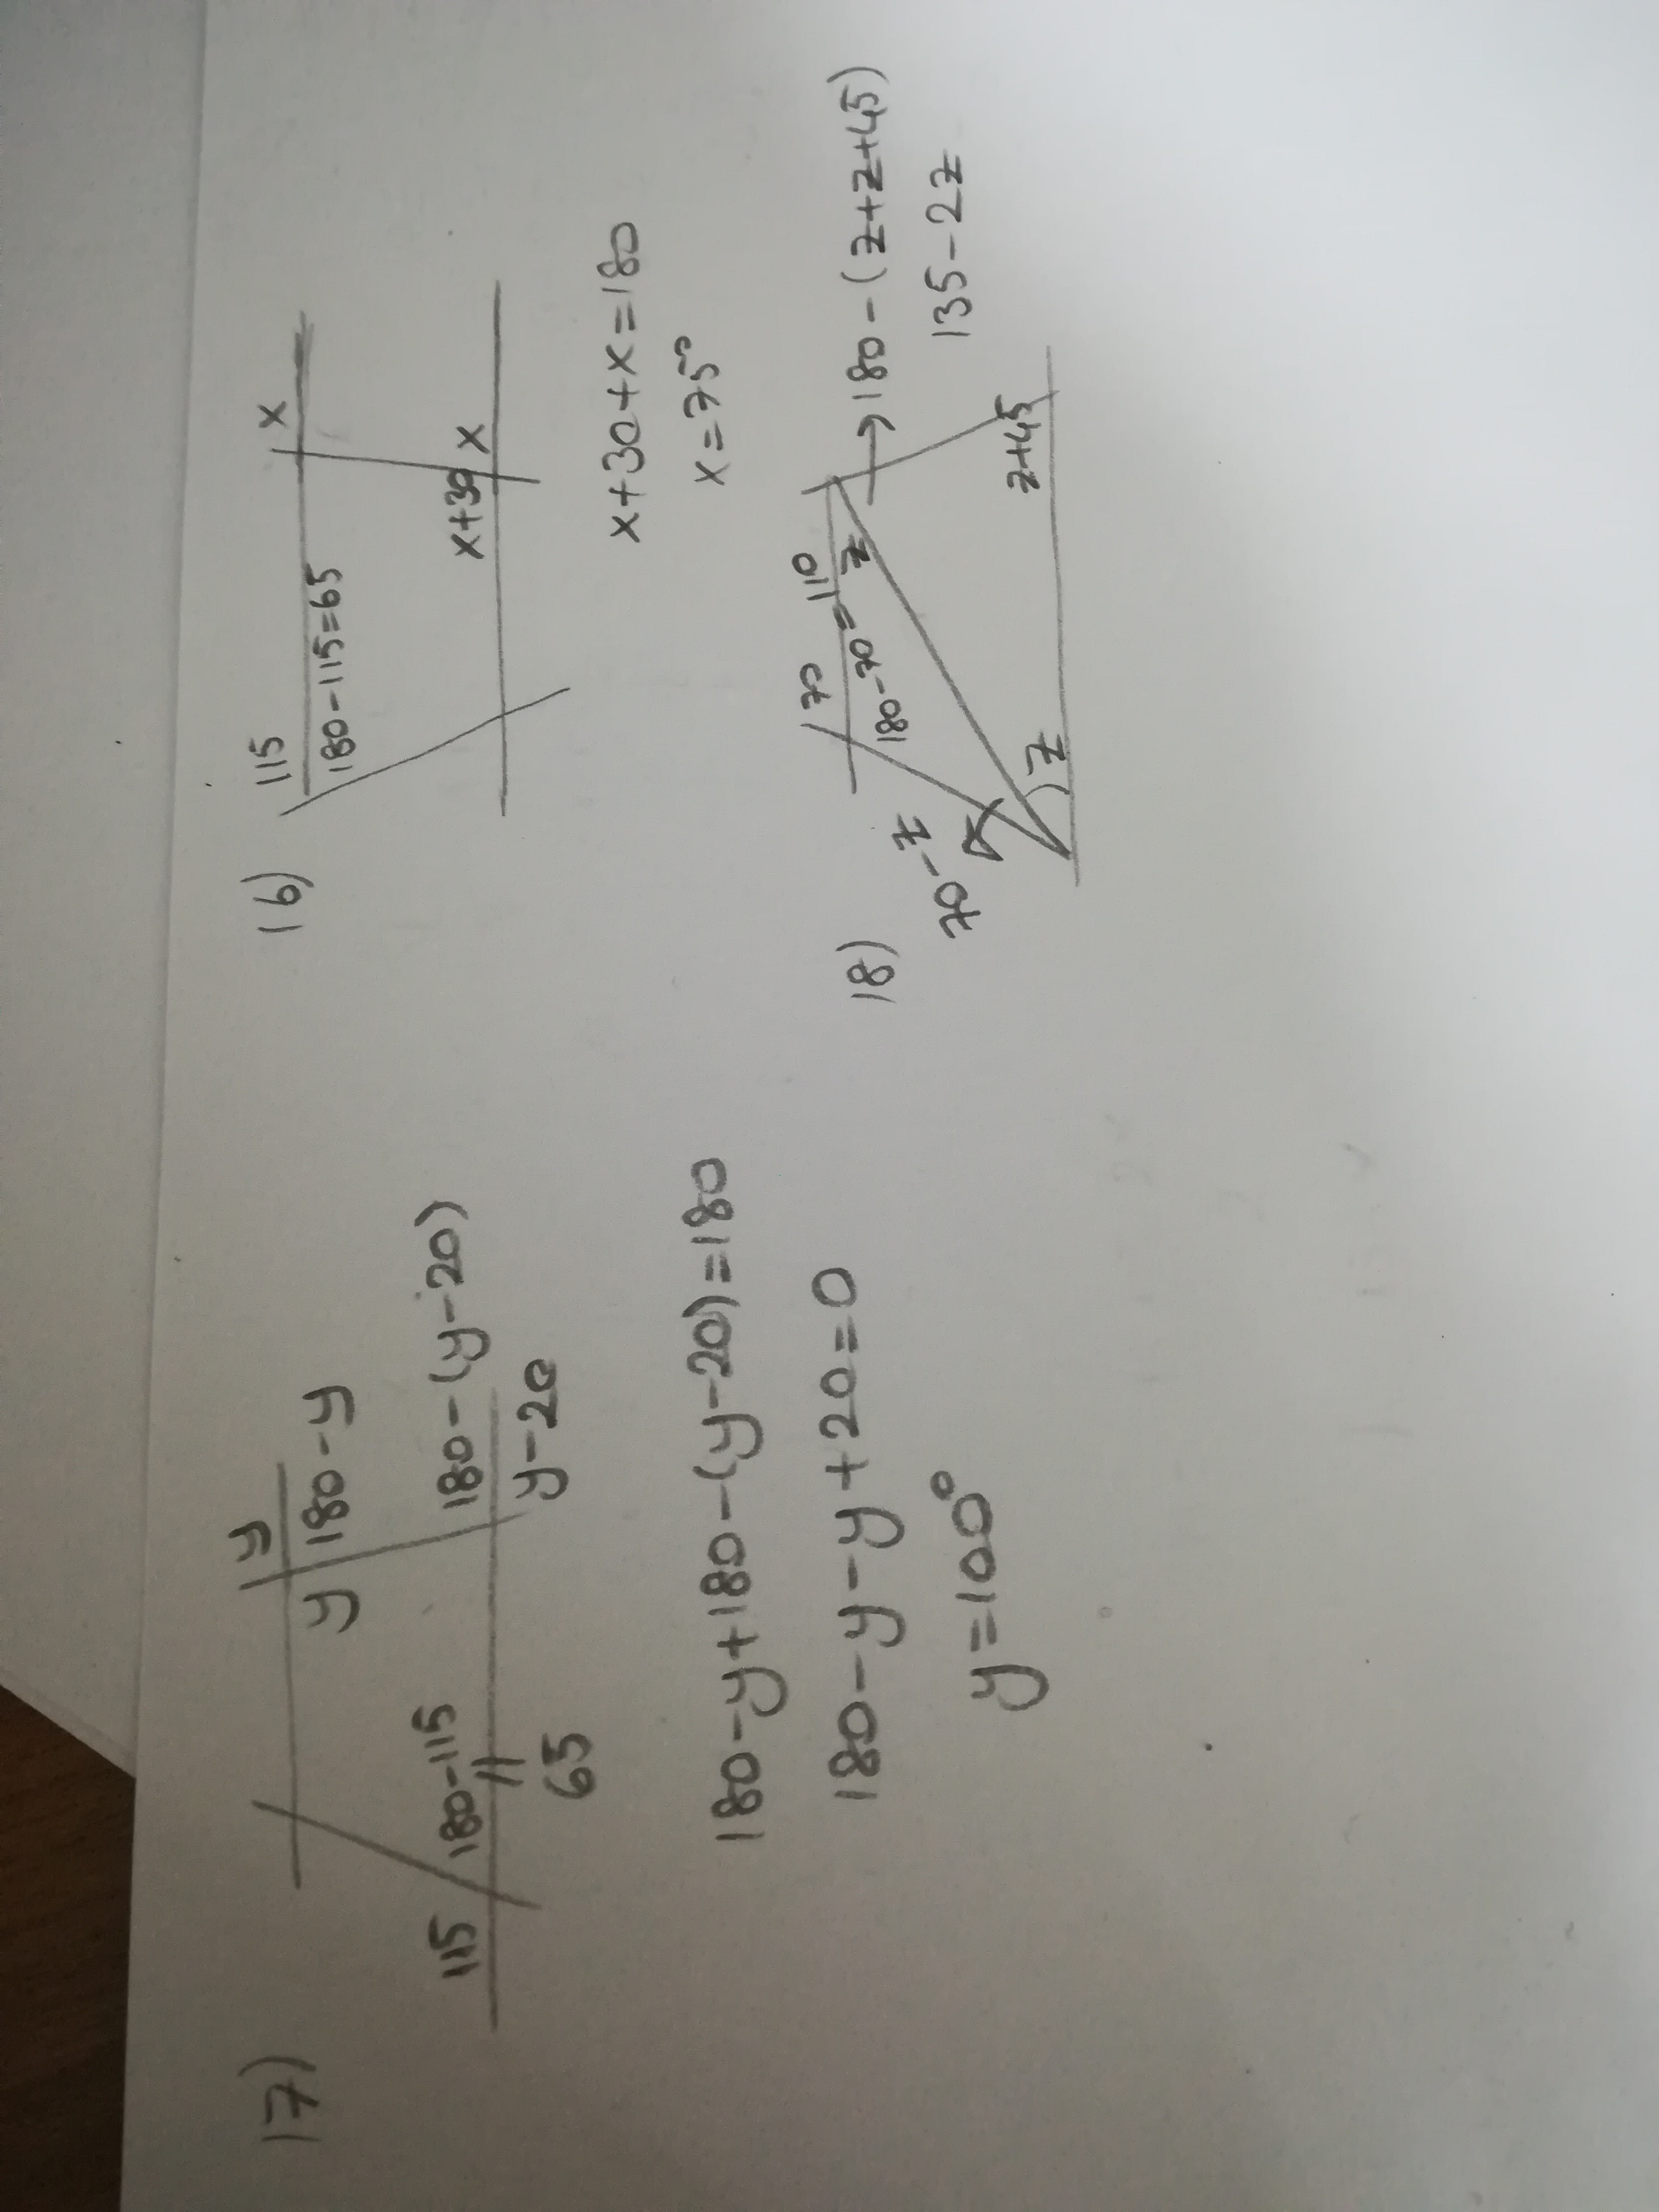 16)
115
x
180-115=65
x+30
x
x+30+x=180
x=75°
17)
y
y
180-y
115
180-115
180-(y-20)
=
65
y-20
180-y+180-(y-20)=180
180-y-y+20=0
y=100°
18)
70
110
180-70=
z
→180-(z+z+45)
135-2z
70-z
z
z+45